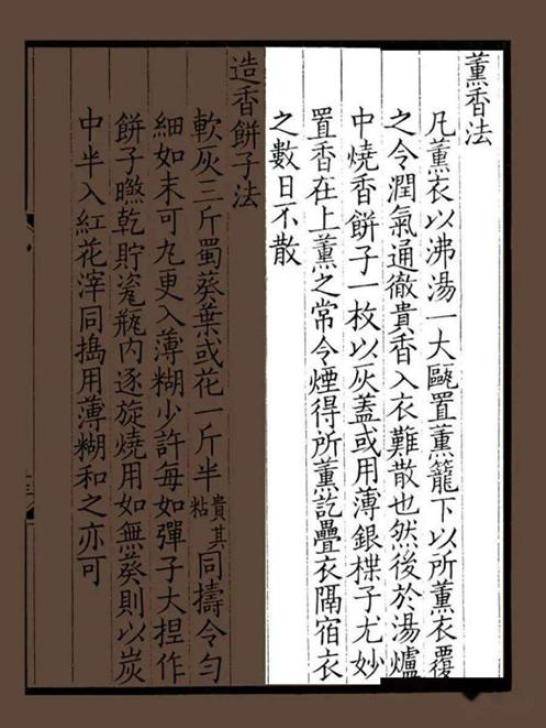 薰香法
凡薰衣以沸湯一大甌置薰籠下以所薰衣覆
之令潤氣通徹貴香入衣難散也然後於湯爐
中燒香餅子一枚以灰蓋或用薄銀楪子尤妙
置香在上薰之常令煙得所薰訖疊衣隔宿衣
之數日不散
造香餅子法
軟灰三斤蜀葵葉或花一斤半貴其粘同擣令勻
細如末可丸更入薄糊少許每如彈子大捏作
餅子曬乾貯瓷瓶内逐旋燒用如無葵則以炭
中半入紅花滓同搗用薄糊和之亦可